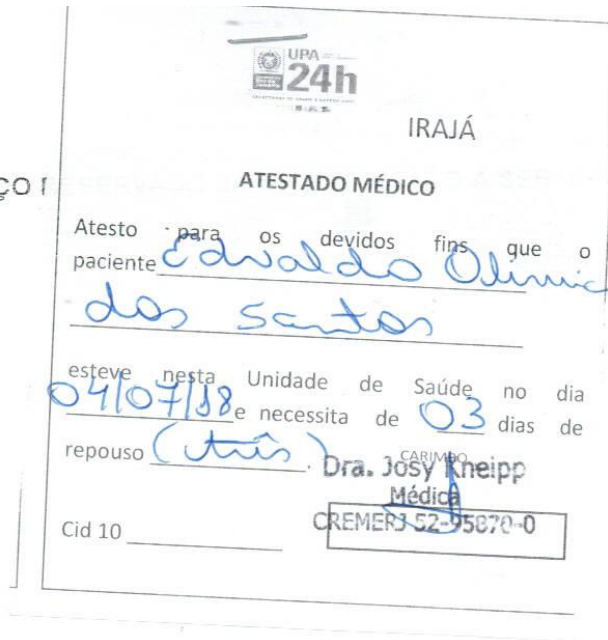 UPA
24h
IRAJÁ
ÇO
ATESTADO MÉDICO
Atesto para os devidos fins que o
paciente Edvaldo
dos Santos
esteve nesta Unidade de Saúde no dia
04/07/18 e necessita de 03 dias de
repouso (três).
CARIMBO
Dra. Josy Kneipp
Médica
CREMERJ 52-95870-0
Cid 10